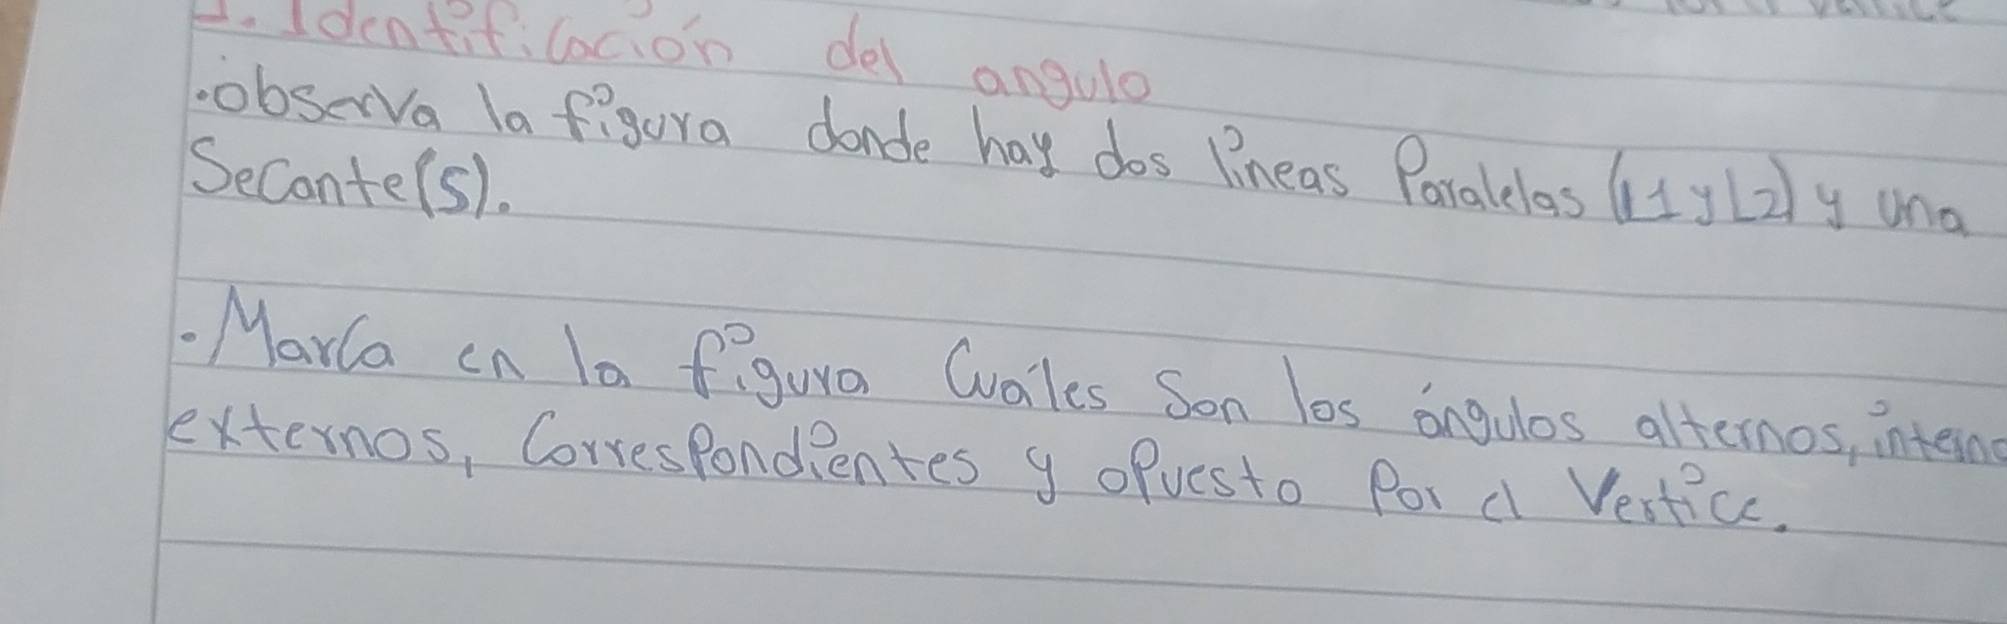 1. Identificación del angulo
.observa la figura donde hay dos líneas Paralelas (L1 y L2) y una
Secante(s).
.Marca en la figura Cuáles Son los ángulos alternos, interno
externos, CorresPondientes y oPuesto Por el Vertice.